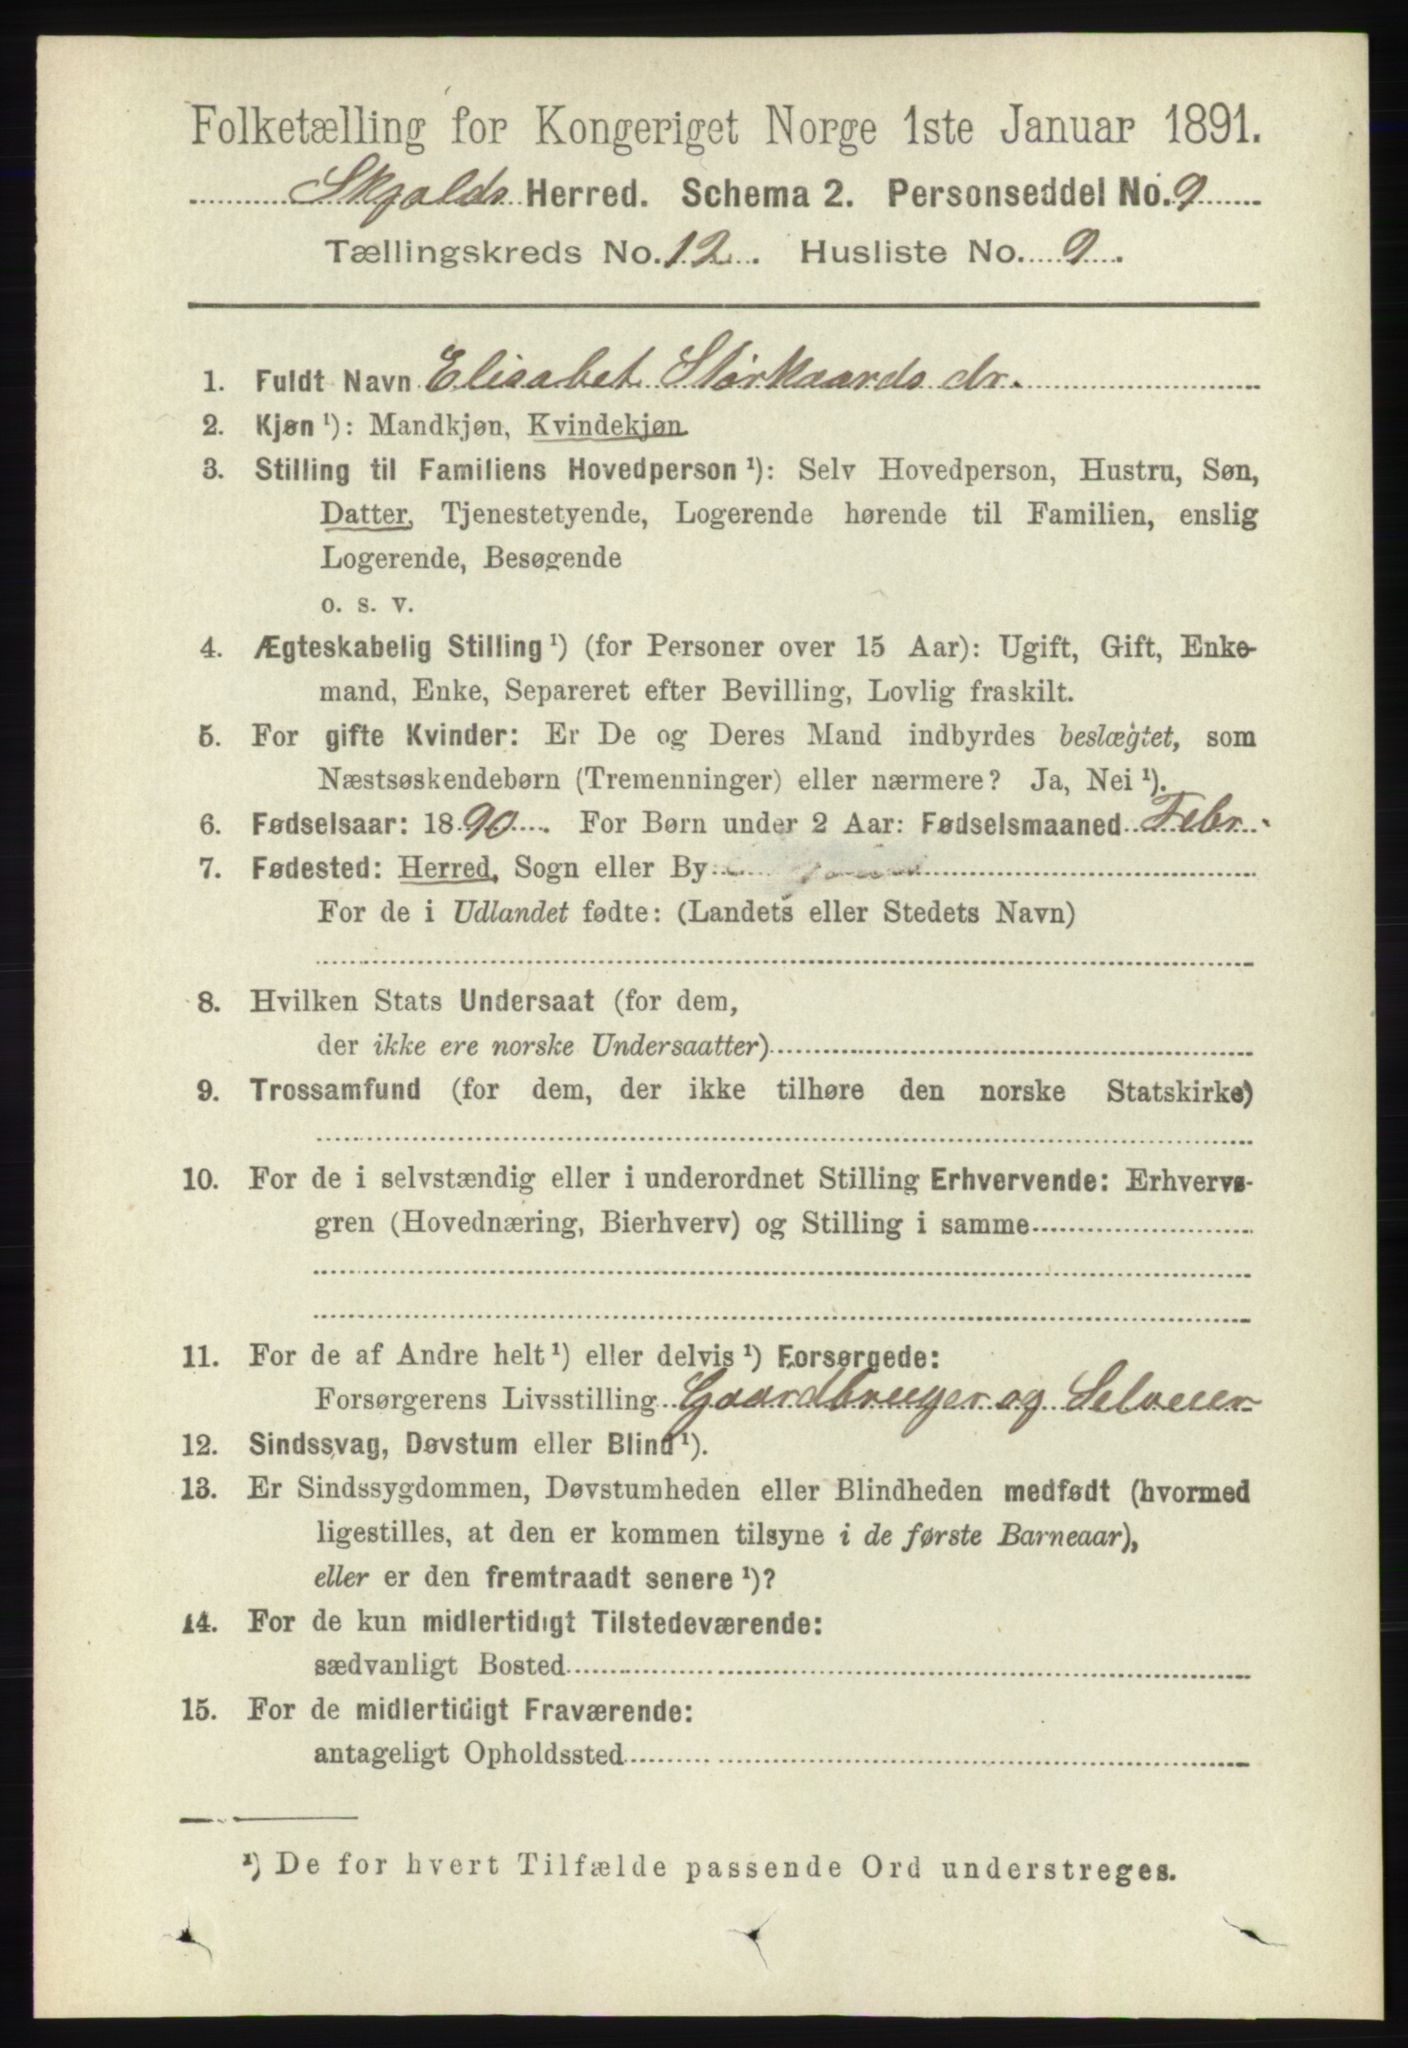 Folketælling for Kongeriget Norge 1ste Januar 1891.
Skjolds Herred. Schema 2. Personseddel No. 9
Tællingskreds No. 12. Husliste No. 9.
1. Fuldt Navn Elisabet Størkaards dr.
2. Kjøn ¹): Mandkjøn, Kvindekjøn
3. Stilling til Familiens Hovedperson ¹): Selv Hovedperson, Hustru, Søn,
Datter, Tjenestetyende, Logerende hørende til Familien, enslig
Logerende, Besøgende
o. s. v.
4. Ægteskabelig Stilling ¹) (for Personer over 15 Aar): Ugift, Gift, Enke-
mand, Enke, Separeret efter Bevilling, Lovlig fraskilt.
5. For gifte Kvinder: Er De og Deres Mand indbyrdes beslægtet, som
Næstsøskendebørn (Tremenninger) eller nærmere? Ja, Nei ¹).
6. Fødselsaar: 1890. For Børn under 2 Aar: Fødselsmaaned Febr.
7. Fødested: Herred, Sogn eller By
For de i Udlandet fødte: (Landets eller Stedets Navn)
8. Hvilken Stats Undersaat (for dem,
der ikke ere norske Undersaatter)
9. Trossamfund (for dem, der ikke tilhøre den norske Statskirke)
10. For de i selvstændig eller i underordnet Stilling Erhvervende: Erhvervs-
gren (Hovednæring, Bierhverv) og Stilling i samme
11. For de af Andre helt ¹) eller delvis ¹) Forsørgede:
Forsørgerens Livsstilling Gaardbruger og Selveier
12. Sindssvag, Døvstum eller Blind ¹).
13. Er Sindssygdommen, Døvstumheden eller Blindheden medfødt (hvormed
ligestilles, at den er kommen tilsyne i de første Barneaar),
eller er den fremtraadt senere ¹)?
14. For de kun midlertidigt Tilstedeværende:
sædvanligt Bosted
15. For de midlertidigt Fraværende:
antageligt Opholdssted
¹) De for hvert Tilfælde passende Ord understreges.